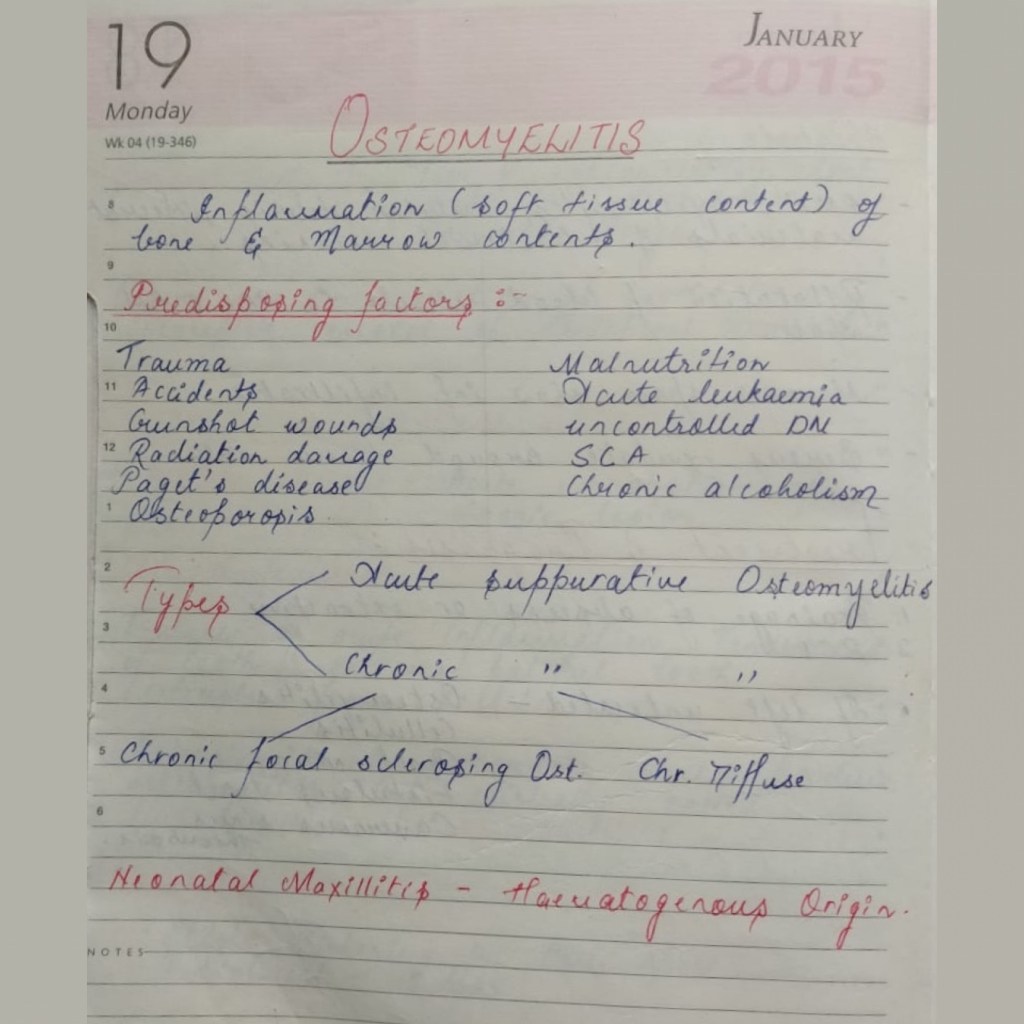 19
January
2015
Monday
Wk 04 (19-346)
Osteomyelitis
8
Inflammation (soft tissue content) of
bone & Marrow contents.
9
Predisposing factors :-
10
Trauma Malnutrition
11 Accidents Acute leukaemia
Gunshot wounds uncontrolled DM
12 Radiation damage SCA
Paget's disease Chronic alcoholism
1 Osteoporosis
2 Acute suppurative Osteomyelitis
Types
3
Chronic " "
4
5 Chronic focal sclerosing Ost. Chr. Diffuse
6
Neonatal Maxillitis - Haematogenous Origin.
NOTES